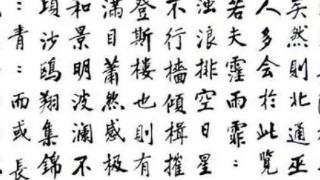 矣然則北通巫
人多會於此覽
若夫霪雨霏：
濁浪排空日星
不行檣傾楫摧
登斯樓也則有
滿目蕭然感極
和景明波瀾不
頃沙鷗翔集錦
：青：而或長